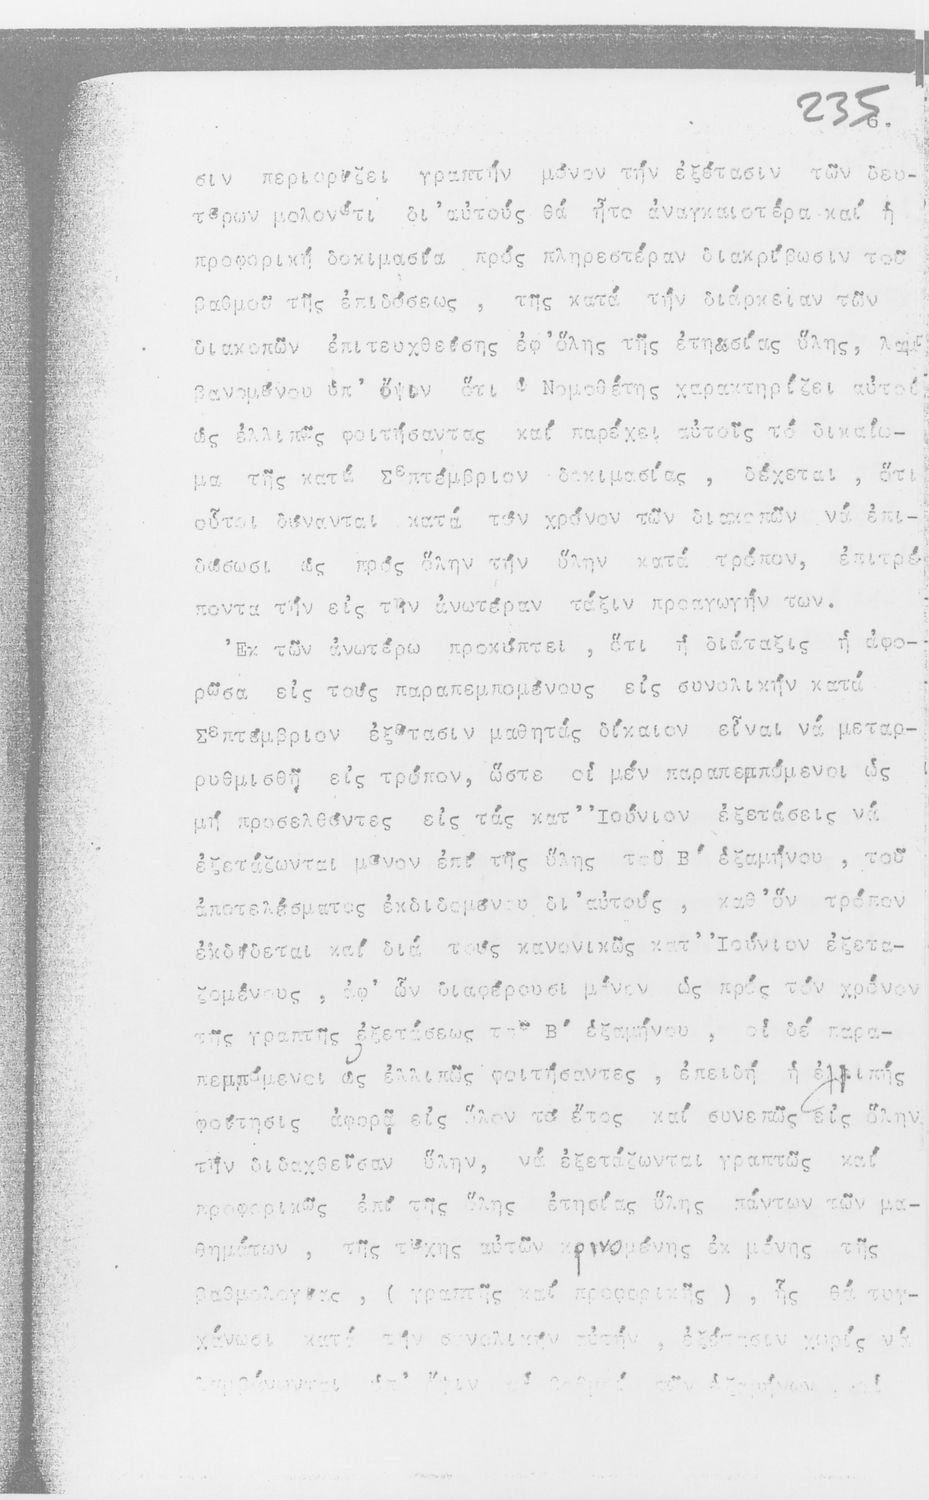 235
6.
σιν περιορίζει γραπτήν μόνον τήν ἐξέτασιν τῶν δευ-
τέρων μολονότι δι'αὐτούς θά ἦτο ἀναγκαιοτέρα καί ἡ
προφορική δοκιμασία πρός πληρεστέραν διακρίβωσιν τοῦ
βαθμοῦ τῆς ἐπιδόσεως , τῆς κατά τήν διάρκειαν τῶν
διακοπῶν ἐπιτευχθείσης ἐφ'ὅλης τῆς ἐτησίας ὕλης, λαμ-
βανομένου ὑπ' ὄψιν ὅτι ὁ Νομοθέτης χαρακτηρίζει αὐτούς
ὡς ἐλλιπῶς φοιτήσαντας καί παρέχει αὐτοῖς τό δικαίω-
μα τῆς κατά Σεπτέμβριον δοκιμασίας , δέχεται , ὅτι
οὗτοι δύνανται κατά τόν χρόνον τῶν διακοπῶν νά ἐπι-
δώσωσι ὡς πρός ὅλην τήν ὕλην κατά τρόπον, ἐπιτρέ
ποντα τήν εἰς τήν ἀνωτέραν τάξιν προαγωγήν των.
'Εκ τῶν ἀνωτέρω προκύπτει , ὅτι ἡ διάταξις ἡ ἀφο-
ρῶσα εἰς τούς παραπεμπομένους εἰς συνολικήν κατά
Σεπτέμβριον ἐξέτασιν μαθητάς δίκαιον εἶναι νά μεταρ-
ρυθμισθῇ εἰς τρόπον, ὥστε οἱ μέν παραπεμπόμενοι ὡς
μή προσελθόντες εἰς τάς κατ''Ιούνιον ἐξετάσεις νά
ἐξετάζωνται μόνον ἐπί τῆς ὕλης τοῦ Β' ἑξαμήνου , τοῦ
ἀποτελέσματος ἐκδιδομένου δι'αὐτούς , καθ'ὅν τρόπον
ἐκδίδεται καί διά τούς κανονικῶς κατ''Ιούνιον ἐξετα-
ζομένους , ἀφ' ὧν διαφέρουσι μόνον ὡς πρός τόν χρόνον
τῆς γραπτῆς ἐξετάσεως τοῦ Β' ἑξαμήνου , οἱ δέ παρα-
πεμπόμενοι ὡς ἐλλιπῶς φοιτήσαντες , ἐπειδή ἡ ἐλλιπής
φοίτησις ἀφορᾷ εἰς ὅλον τό ἔτος καί συνεπῶς εἰς ὅλην
τήν διδαχθεῖσαν ὕλην, νά ἐξετάζωνται γραπτῶς καί
προφορικῶς ἐπί τῆς ὅλης ἐτησίας ὕλης πάντων τῶν μα-
θημάτων , τῆς τύχης αὐτῶν κρινομένης ἐκ μόνης τῆς
βαθμολογίας , ( γραπτῆς καί προφορικῆς ) , ἧς θά τυγ-
χάνωσι κατά τήν συνολικήν αὐτήν , ἐξέτασιν χωρίς νά
λαμβάνωνται ὑπ' ὄψιν οἱ βαθμοί τῶν ἑξαμήνων , οἱ